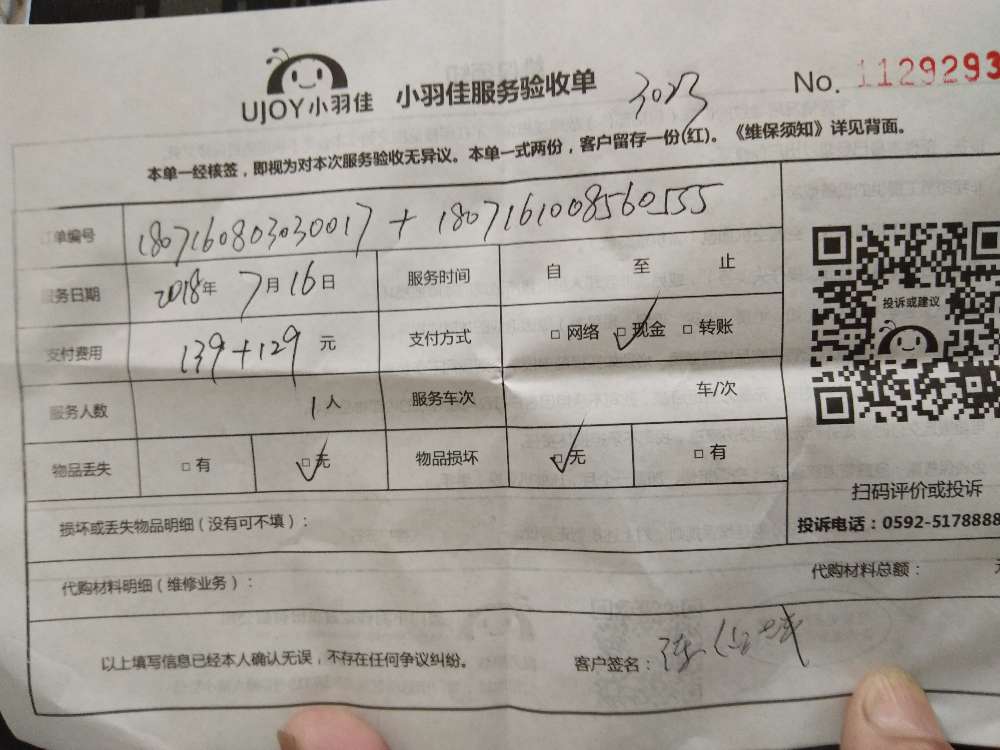 UJOY小羽佳 小羽佳服务验收单 No. 1129293
本单一经核签，即视为对本次服务验收无异议。本单一式两份，客户留存一份(红)。《维保须知》详见背面。
订单编号 1807160803030017 + 1807161008560555
服务日期 2018年 7月16日 服务时间 自 至 止
支付费用 139+129 元 支付方式 □网络 □现金 □转账
服务人数 1人 服务车次 车/次
物品丢失 □有 □无 物品损坏 □无 □有
投诉或建议
扫码评价或投诉
投诉电话：0592-5178888
损坏或丢失物品明细（没有可不填）：
代购材料明细（维修业务）： 代购材料总额：
以上填写信息已经本人确认无误，不存在任何争议纠纷。 客户签名：